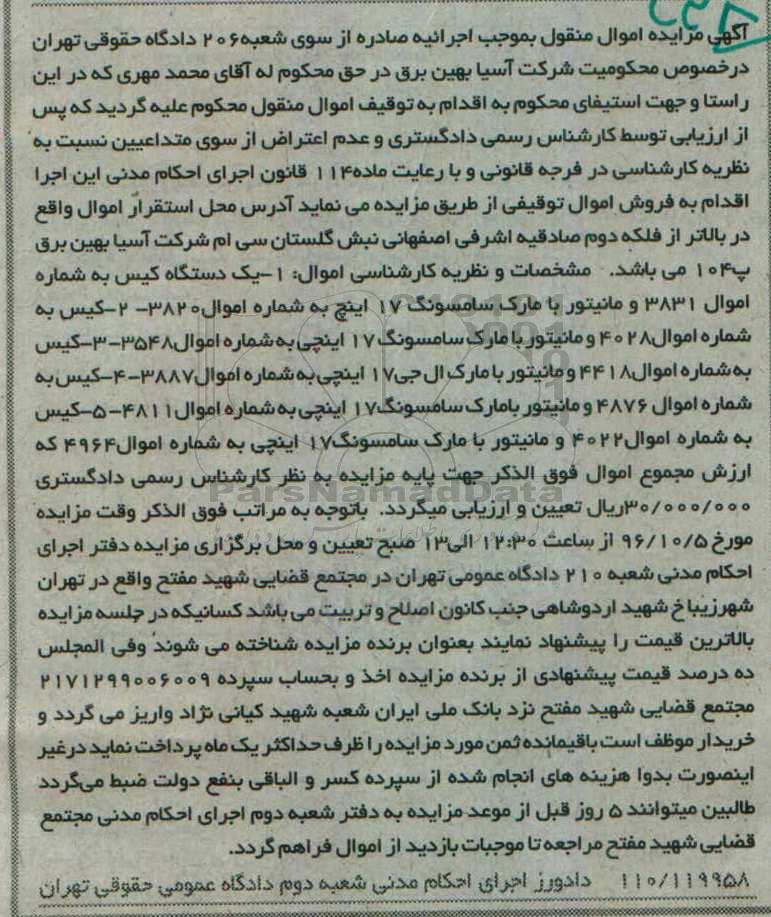 آگهی مزایده اموال منقول بموجب اجرائیه صادره از سوی شعبه۲۰۶ دادگاه حقوقی تهران
درخصوص محکومیت شرکت آسیا بهین برق در حق محکوم له آقای محمد مهری که در این
راستا و جهت استیفای محکوم به اقدام به توقیف اموال منقول محکوم علیه گردید که پس
از ارزیابی توسط کارشناس رسمی دادگستری و عدم اعتراض از سوی متداعیین نسبت به
نظریه کارشناسی در فرجه قانونی و با رعایت ماده۱۱۴ قانون اجرای احکام مدنی این اجرا
اقدام به فروش اموال توقیفی از طریق مزایده می نماید آدرس محل استقرار اموال واقع
در بالاتر از فلکه دوم صادقیه اشرفی اصفهانی نبش گلستان سی ام شرکت آسیا بهین برق
پ۱۰۴ می باشد. مشخصات و نظریه کارشناسی اموال: ۱-یک دستگاه کیس به شماره
اموال ۳۸۳۱ و مانیتور با مارک سامسونگ ۱۷ اینچ به شماره اموال۳۸۲۰- ۲-کیس به
شماره اموال۴۰۲۸ و مانیتور با مارک سامسونگ ۱۷ اینچی به شماره اموال۳۵۴۸-۳-کیس
به شماره اموال۴۴۱۸ و مانیتور با مارک ال جی۱۷ اینچی به شماره اموال۳۸۸۷-۴-کیس به
شماره اموال ۴۸۷۶ و مانیتور بامارک سامسونگ۱۷ اینچی به شماره اموال۴۸۱۱-۵-کیس
به شماره اموال۴۰۲۲ و مانیتور با مارک سامسونگ۱۷ اینچی به شماره اموال۴۹۶۴ که
ارزش مجموع اموال فوق الذکر جهت پایه مزایده به نظر کارشناس رسمی دادگستری
۳۰/۰۰۰/۰۰۰ریال تعیین و ارزیابی میگردد. باتوجه به مراتب فوق الذکر وقت مزایده
مورخ ۹۶/۱۰/۵ از ساعت ۱۲:۳۰ الی۱۳ صبح تعیین و محل برگزاری مزایده دفتر اجرای
احکام مدنی شعبه ۲۱۰ دادگاه عمومی تهران در مجتمع قضایی شهید مفتح واقع در تهران
شهرزیباخ شهید اردوشاهی جنب کانون اصلاح و تربیت می باشد کسانیکه در جلسه مزایده
بالاترین قیمت را پیشنهاد نمایند بعنوان برنده مزایده شناخته می شوند وفی المجلس
ده درصد قیمت پیشنهادی از برنده مزایده اخذ و بحساب سپرده ۲۱۷۱۲۹۹۰۰۶۰۰۹
مجتمع قضایی شهید مفتح نزد بانک ملی ایران شعبه شهید کیانی نژاد واریز می گردد و
خریدار موظف است باقیمانده ثمن مورد مزایده را ظرف حداکثر یک ماه پرداخت نماید درغیر
اینصورت بدوا هزینه های انجام شده از سپرده کسر و الباقی بنفع دولت ضبط می‌گردد
طالبین میتوانند ۵ روز قبل از موعد مزایده به دفتر شعبه دوم اجرای احکام مدنی مجتمع
قضایی شهید مفتح مراجعه تا موجبات بازدید از اموال فراهم گردد.
۱۱۰/۱۱۹۹۵۸ دادورز اجرای احکام مدنی شعبه دوم دادگاه عمومی حقوقی تهران
ParsNamadData